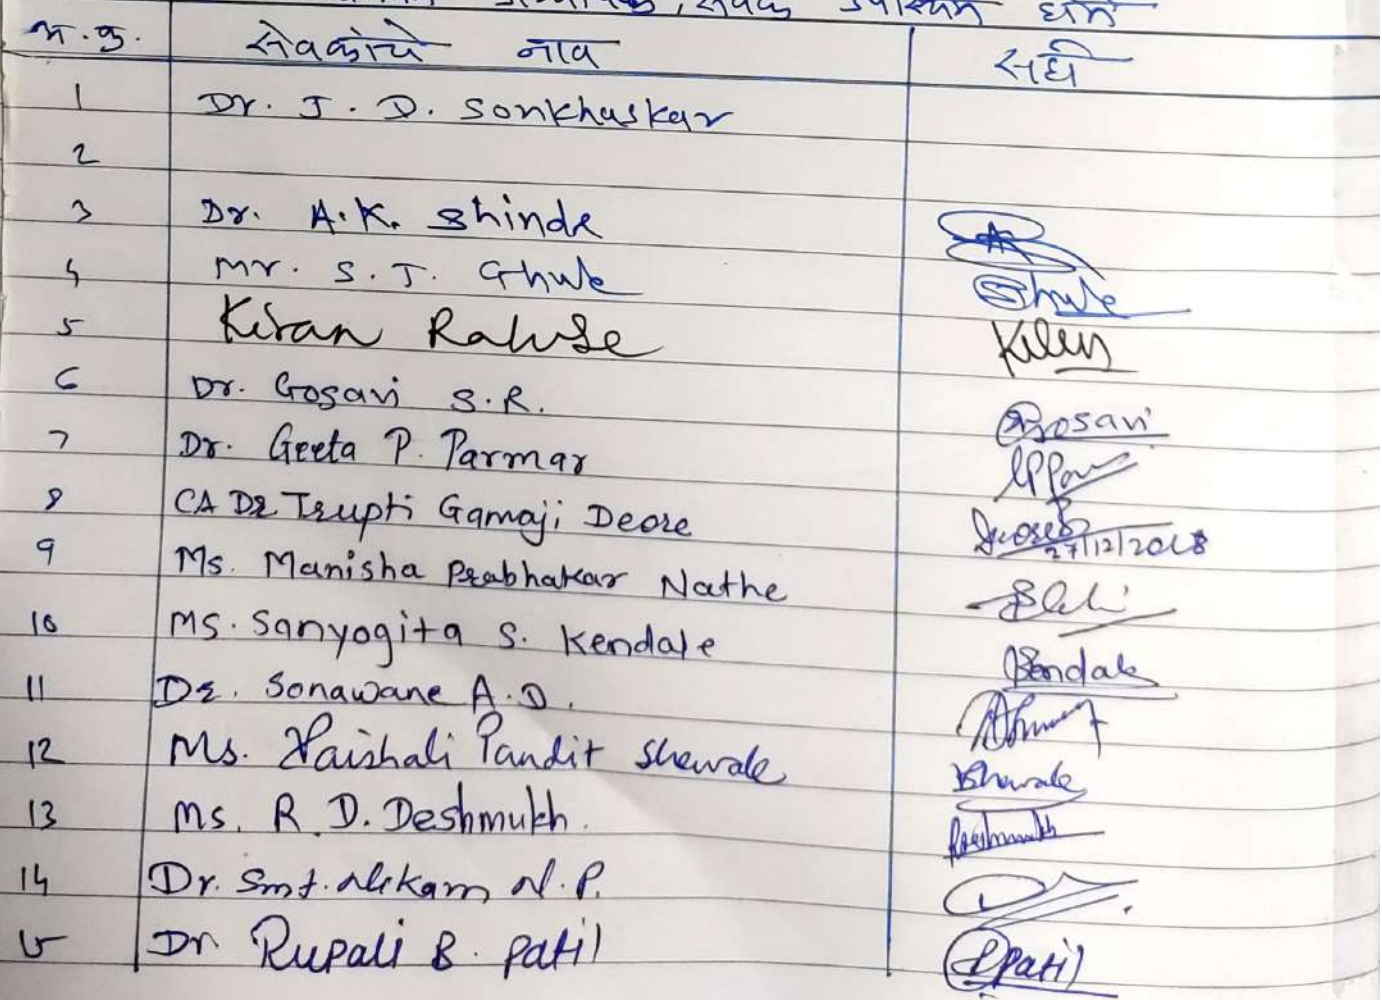 उपस्थित होते
अ.क्र. सेवकांचे नाव सही
1 Dr. J. D. Sonkhaskar
2
3 Dr. A.K. Shinde
4 Mr. S. J. Ghule Ghule
5 Kiran Rakshe Kiran
6 Dr. Gosavi S.R. Gosavi
7 Dr. Geeta P. Parmar GPPar
8 CA Dr Trupti Gamaji Deore Deore 27/12/2018
9 Ms. Manisha Prabhakar Nathe
10 Ms. Sanyogita S. Kendale Kendale
11 Dr. Sonawane A.D.
12 Ms. Vaishali Pandit Shewale Shewale
13 Ms. R.D. Deshmukh. RDeshmukh
14 Dr. Smt. Nikam N.P.
15 Dr Rupali B. Patil Rpatil